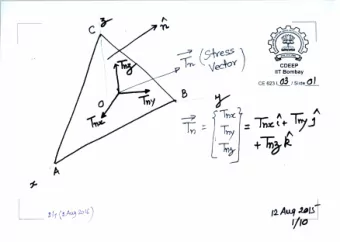 C z
n̂
→Tn (Stress Vector)
Tnz
O
Tny
B
Tnx
y
→Tn = { Tnx Tny Tnz } = Tnx î + Tny ĵ + Tnz k̂
A
x
CDEEP
IIT Bombay
CE 623 L 03 / Slide 01
12 Aug 2015
1/10